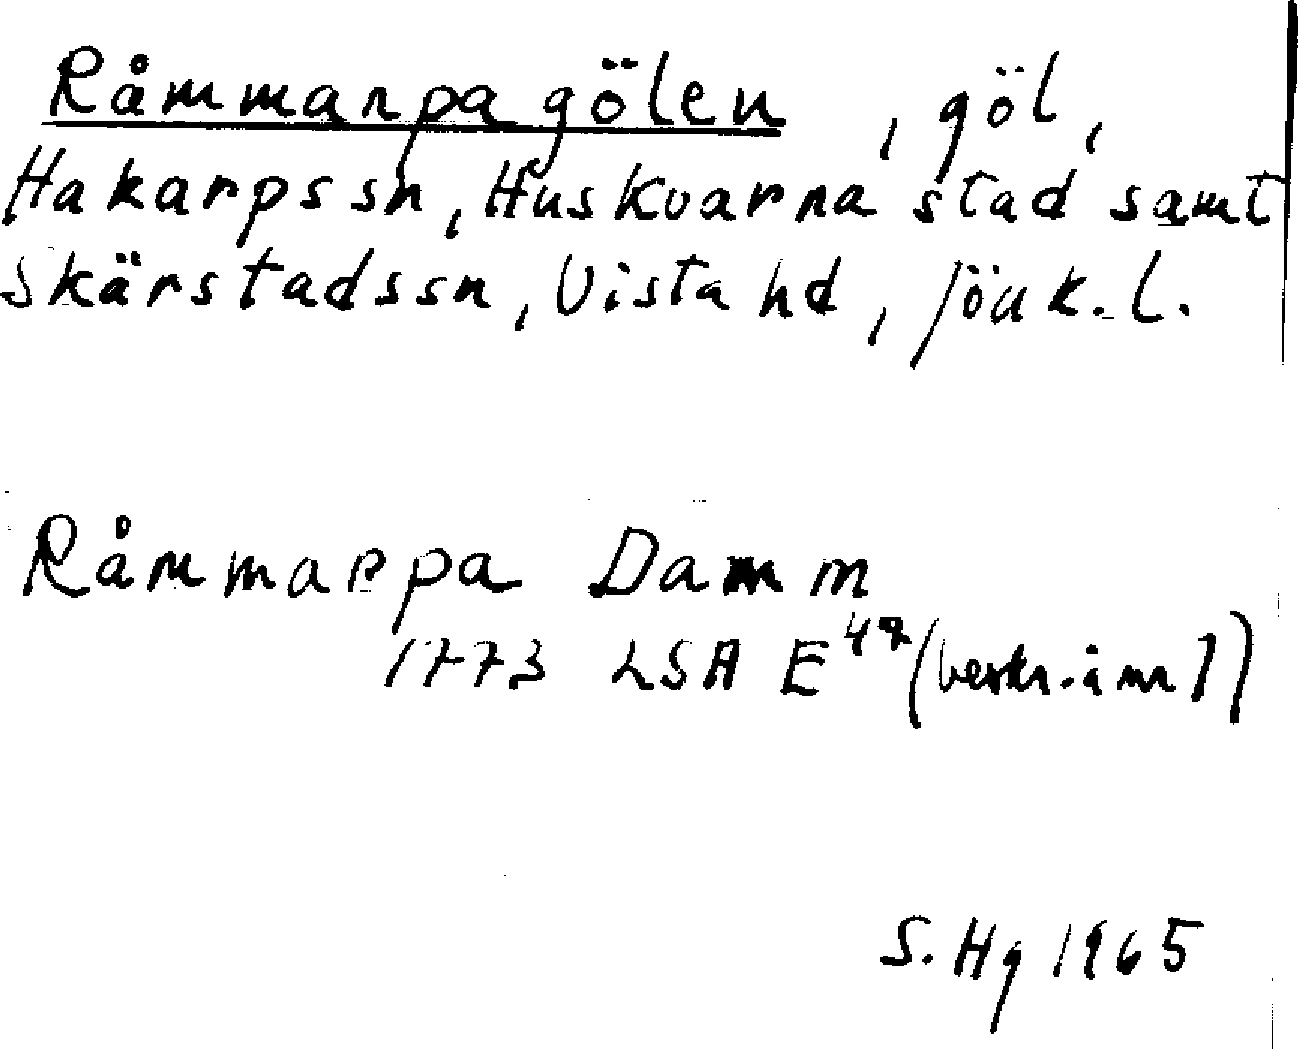 Råmmarpagölen, göl,
Hakarps sn, Huskvarna stad samt
Skärstads sn, Vista hd, Jönk. l.
Råmmarpa Damm
1773 LSA E 47 (beskr. å nr 1)
S. Hg 1965